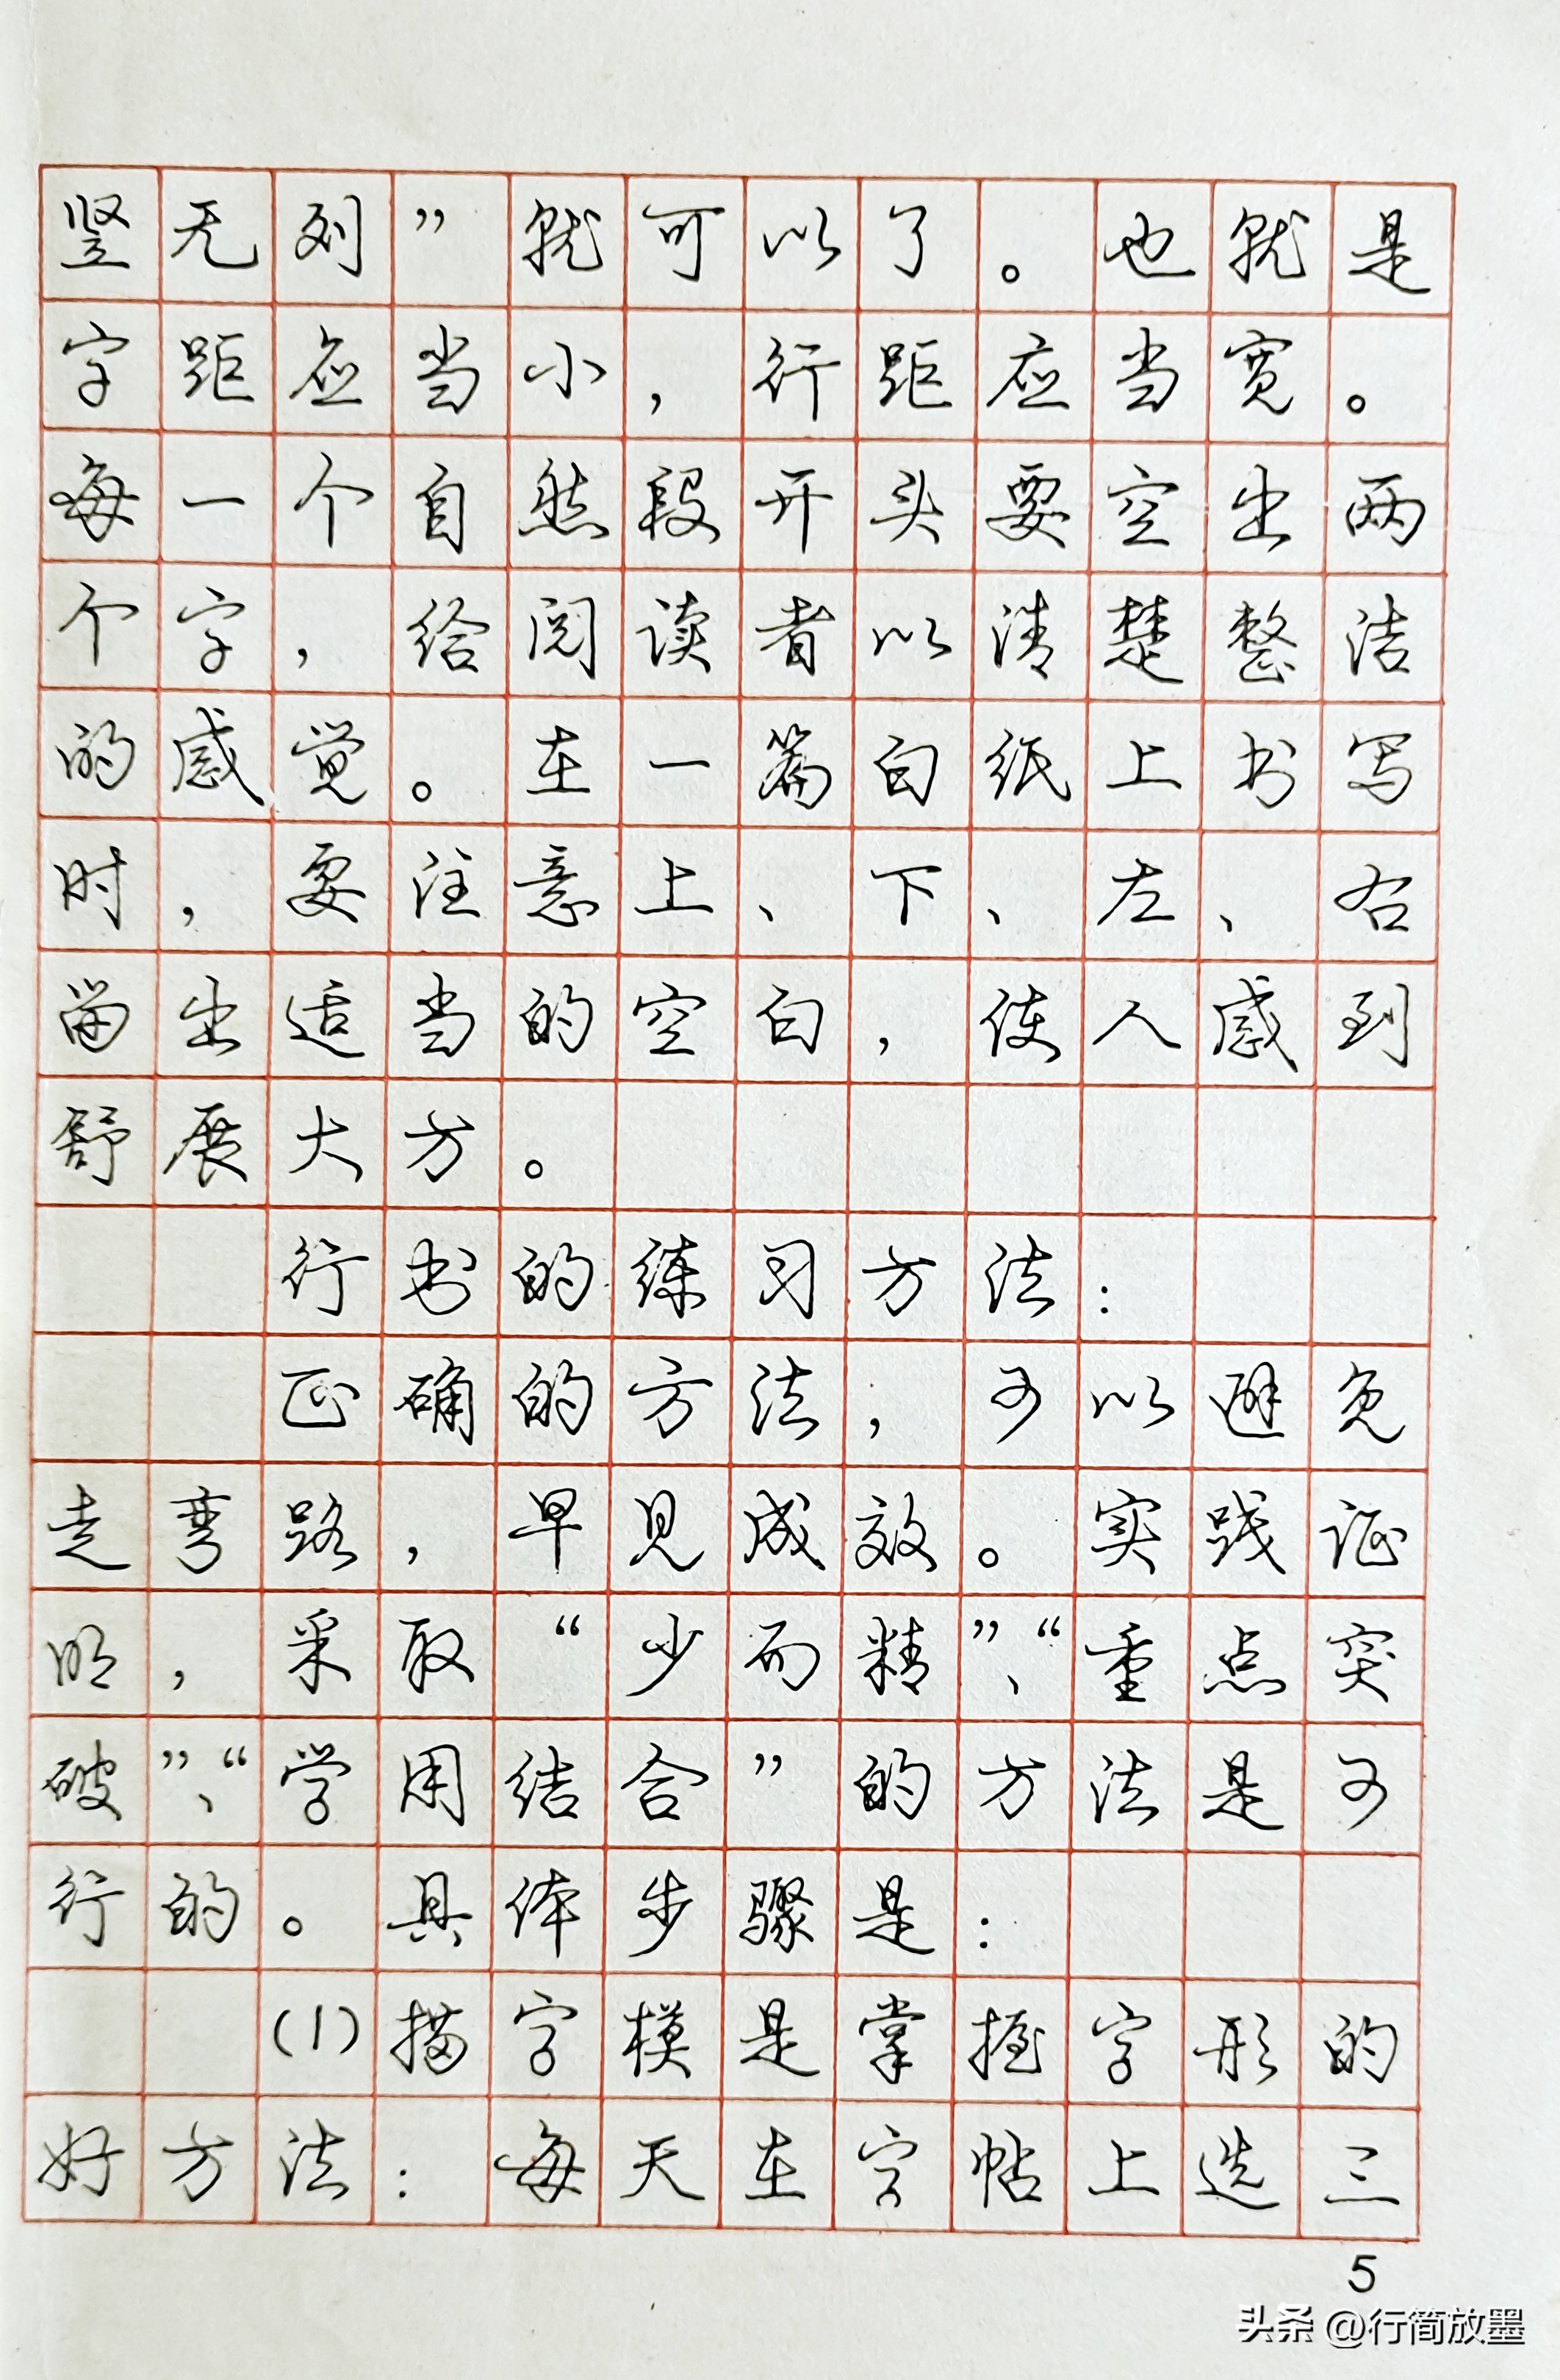 竖无列”就可以了。也就是
字距应当小，行距应当宽。
每一个自然段开头要空出两
个字，给阅读者以清楚整洁
的感觉。在一篇白纸上书写
时，要注意上、下、左、右
留出适当的空白，使人感到
舒展大方。
行书的练习方法：
正确的方法，可以避免
走弯路，早见成效。实践证
明，采取“少而精”、“重点突
破”、“学用结合”的方法是可
行的。具体步骤是：
(1)描字模是掌握字形的
好方法：每天在字帖上选三
5
头条 @行简放墨